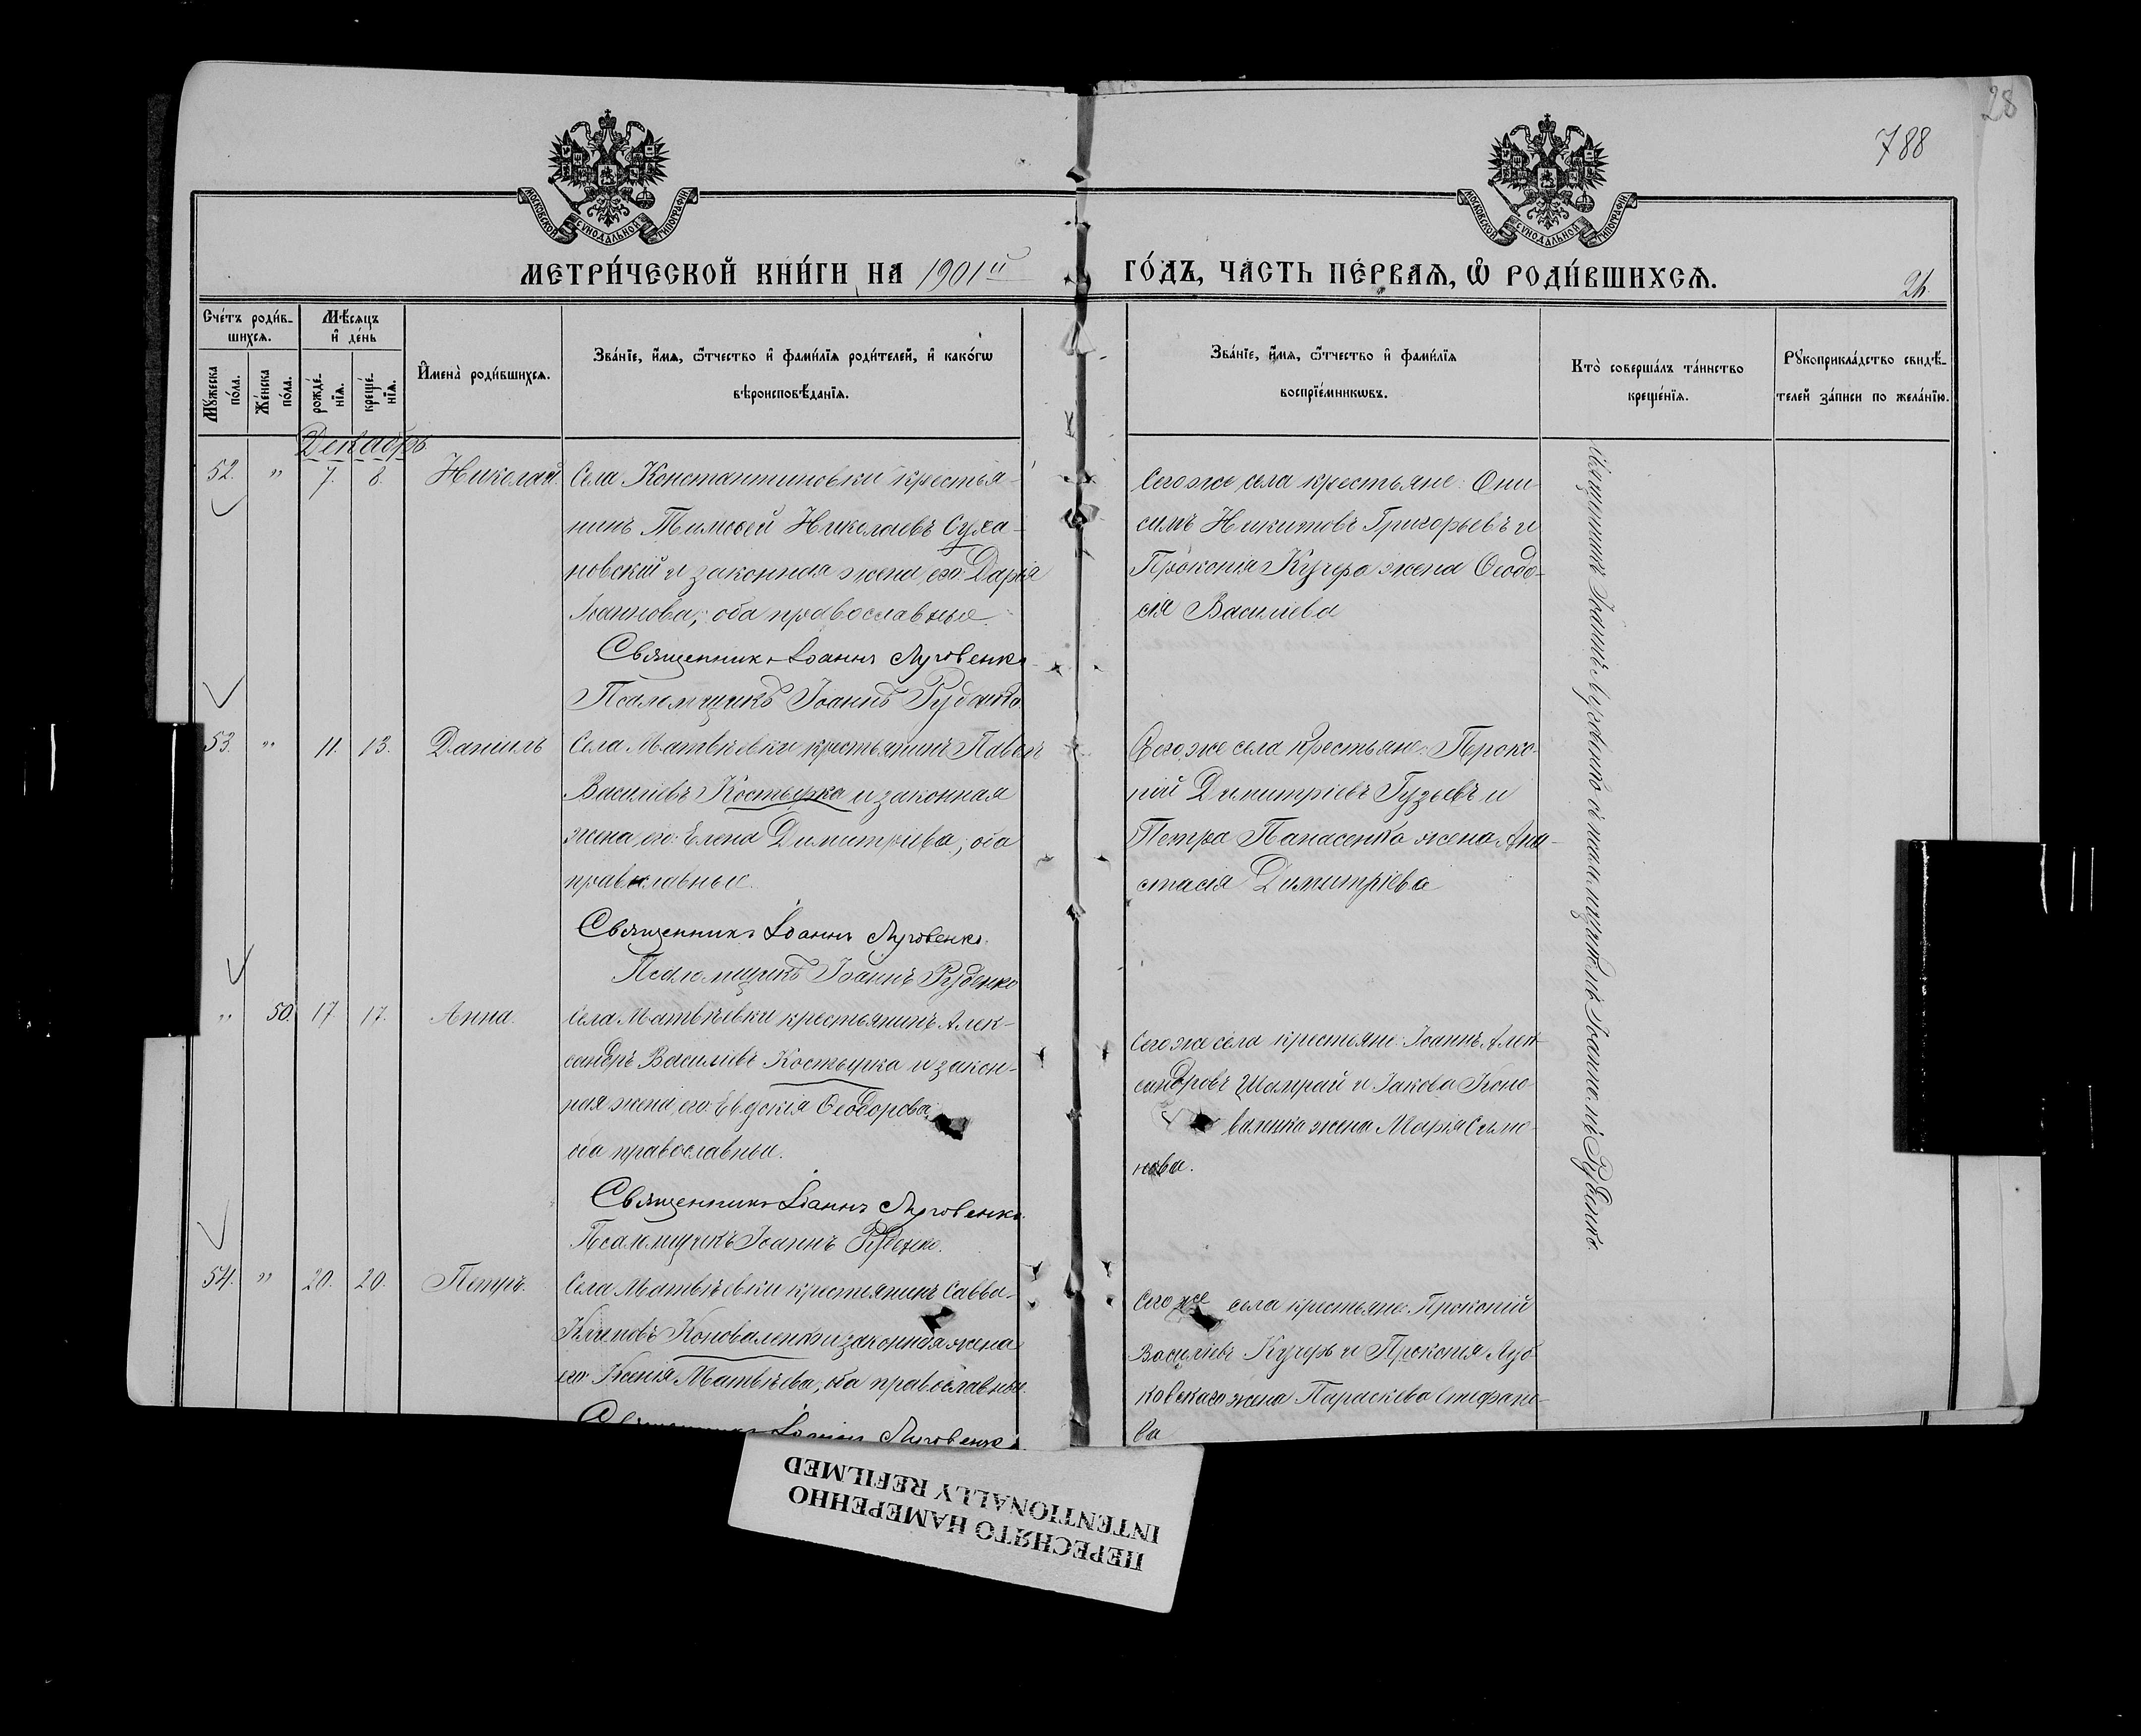 28
788
МОСКОВСКОЙ СѴНОДАЛЬНОЙ ТИПОГРАФІИ
МОСКОВСКОЙ СѴНОДАЛЬНОЙ ТИПОГРАФІИ
МЕТРИ́ЧЕСКОЙ КНИ́ГИ НА 1901й
ГО́ДЪ, ЧАСТЬ ПЕ́РВАѦ, Ѡ҆ РОДИ́ВШИХСѦ.
Сче́тъ роди́в-
шихсѧ.
Мꙋ́жеска по́ла.
Же́нска по́ла.
Мѣ́сѧцъ
и҆ де́нь
рожде́-
нїѧ.
креще́-
нїѧ.
И҆мена̀ роди́вшихсѧ.
Зва́нїе, и҆́мѧ, ѻ҆́тчество и҆ фами́лїѧ роди́телей, и҆ како́гѡ
вѣроисповѣ́данїѧ.
Зва́нїе, и҆́мѧ, ѻ҆́тчество и҆ фами́лїѧ
воспрїе́мникѡвъ.
Кто̀ соверша́лъ та́инство
креще́нїѧ.
Рꙋкоприкла́дство свидѣ́-
телей за́писи по жела́нїю.
Декабрь
52. " 7. 8. Николай
Села Константиновки крестья-
нинъ Тимоѳей Николаевъ Суха-
новскій и законная жена его Дарія
Іоаннова; оба православные.
Священникъ Іоаннъ Луговенко
Псаломщикъ Іоаннъ Руденко
Сего же села крестьяне: Они-
симъ Никитовъ Григорьевъ и
Прокопія Кучера жена Ѳеодо-
сія Василіева
53. " 11. 13. Даніилъ
Села Матвѣевки крестьянинъ Павелъ
Василіевъ Костырка и законная
жена его: Елена Димитріева; оба
православные.
Священникъ Іоаннъ Луговенко.
Псаломщикъ Іоаннъ Руденко
Сего же села крестьяне: Проко-
пій Димитріевъ Гузьевъ и
Петра Панасенко жена Ана-
стасія Димитріева
" 50. 17 17. Анна.
Села Матвѣевки крестьянинъ Алек-
сандръ Василіевъ Костырка и закон-
ная жена его: Евдокія Ѳеодорова;
оба православные.
Священникъ Іоаннъ Луговенко.
Псаломщикъ Іоаннъ Руденко.
Сего же села крестьяне: Іоаннъ Алек-
сандровъ Шамрай и Іакова Коно-
валенка жена Марія Симо-
нова.
54. " 20. 20. Петръ.
Села Матвѣевки крестьянинъ Савва
Климовъ Коноваленко и законная жена
его: Ксенія Матвѣева; оба православные.
Священникъ Іоаннъ Луговенко
Сего же села крестьяне: Прокопій
Василіевъ Кучеръ и Прокопія Луб-
ковскаго жена Параскева Стефано-
ва
Священникъ Іоаннъ Луговенко съ псаломщикомъ Іоанномъ Руденко.
ПЕРЕСНЯТО НАМЕРЕННО
INTENTIONALLY REFILMED